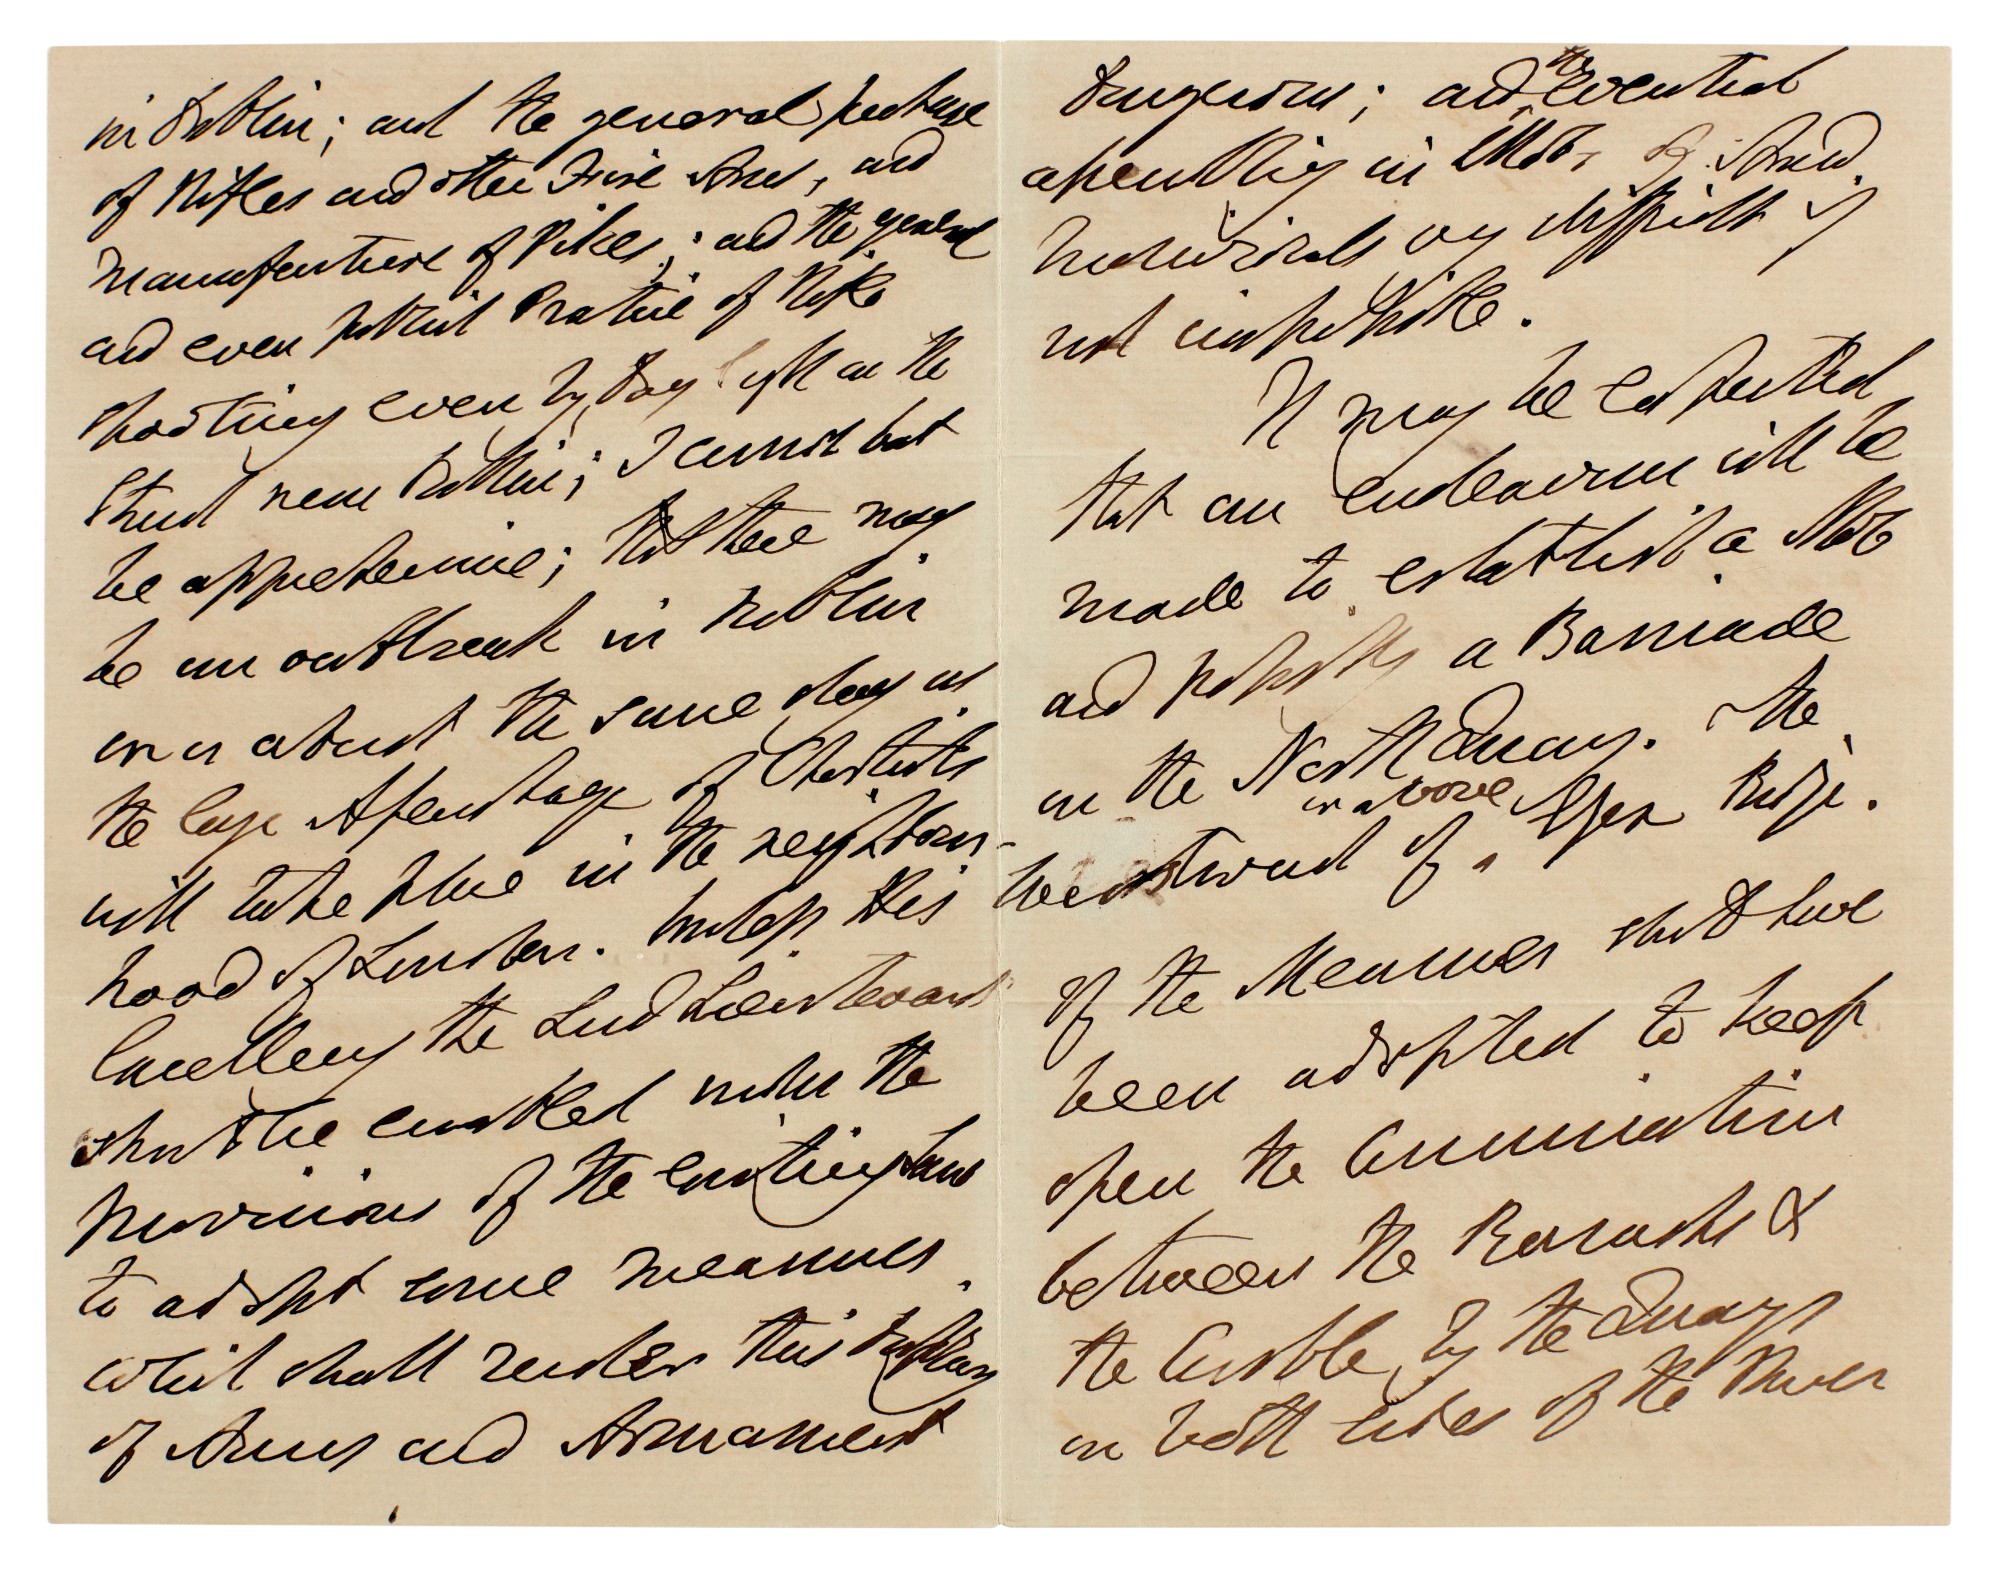 in Dublin; and the general purchase
of Rifles and other Fire Arms, and
manufacture of Pikes; and the general
and even publick Practice of Rifle
shooting even by Day light on the
Strand near Dublin; I cannot but
be apprehensive; that there may
be an outbreak in Dublin
on or about the same day as
the large Assemblage of Chartists
will take place in the neighbour-
hood of London. Unless His
Excellency the Lord Lieutenant
should be enabled under the
provisions of the existing Laws
to adopt some measures
which shall render this Display
of Arms and Armament
dangerous; and the eventual
assembling in Mobs of Armed
individuals very difficult if
not impossible.
It may be expected
that an endeavour will be
made to establish a Mob
and possibly a Barricade
on the North Quay. The
westward of on above Essex Bridge.
If the Measures should have
been adopted to keep
open the Communication
between the Barracks &
the Castle, by the Quays
on both sides of the River